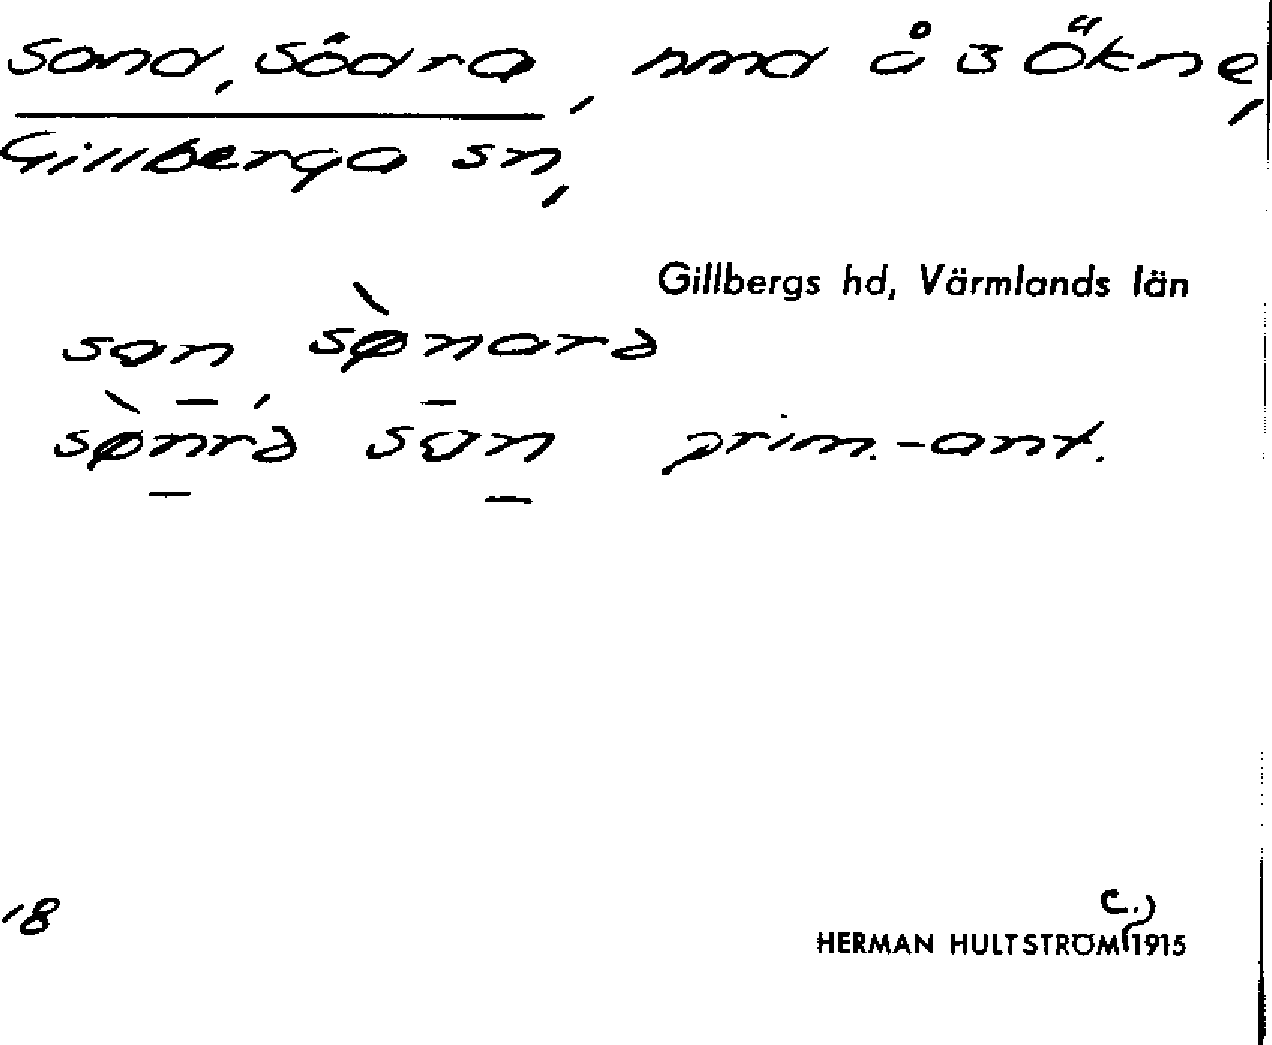 Sand, Södra, hmd å 3 Ökne,
Gillberga sn,
Gillbergs hd, Värmlands län
san sø̀narə
sø̀nrə san prim.-ant.
18
c.)
HERMAN HULTSTRÖM 1915